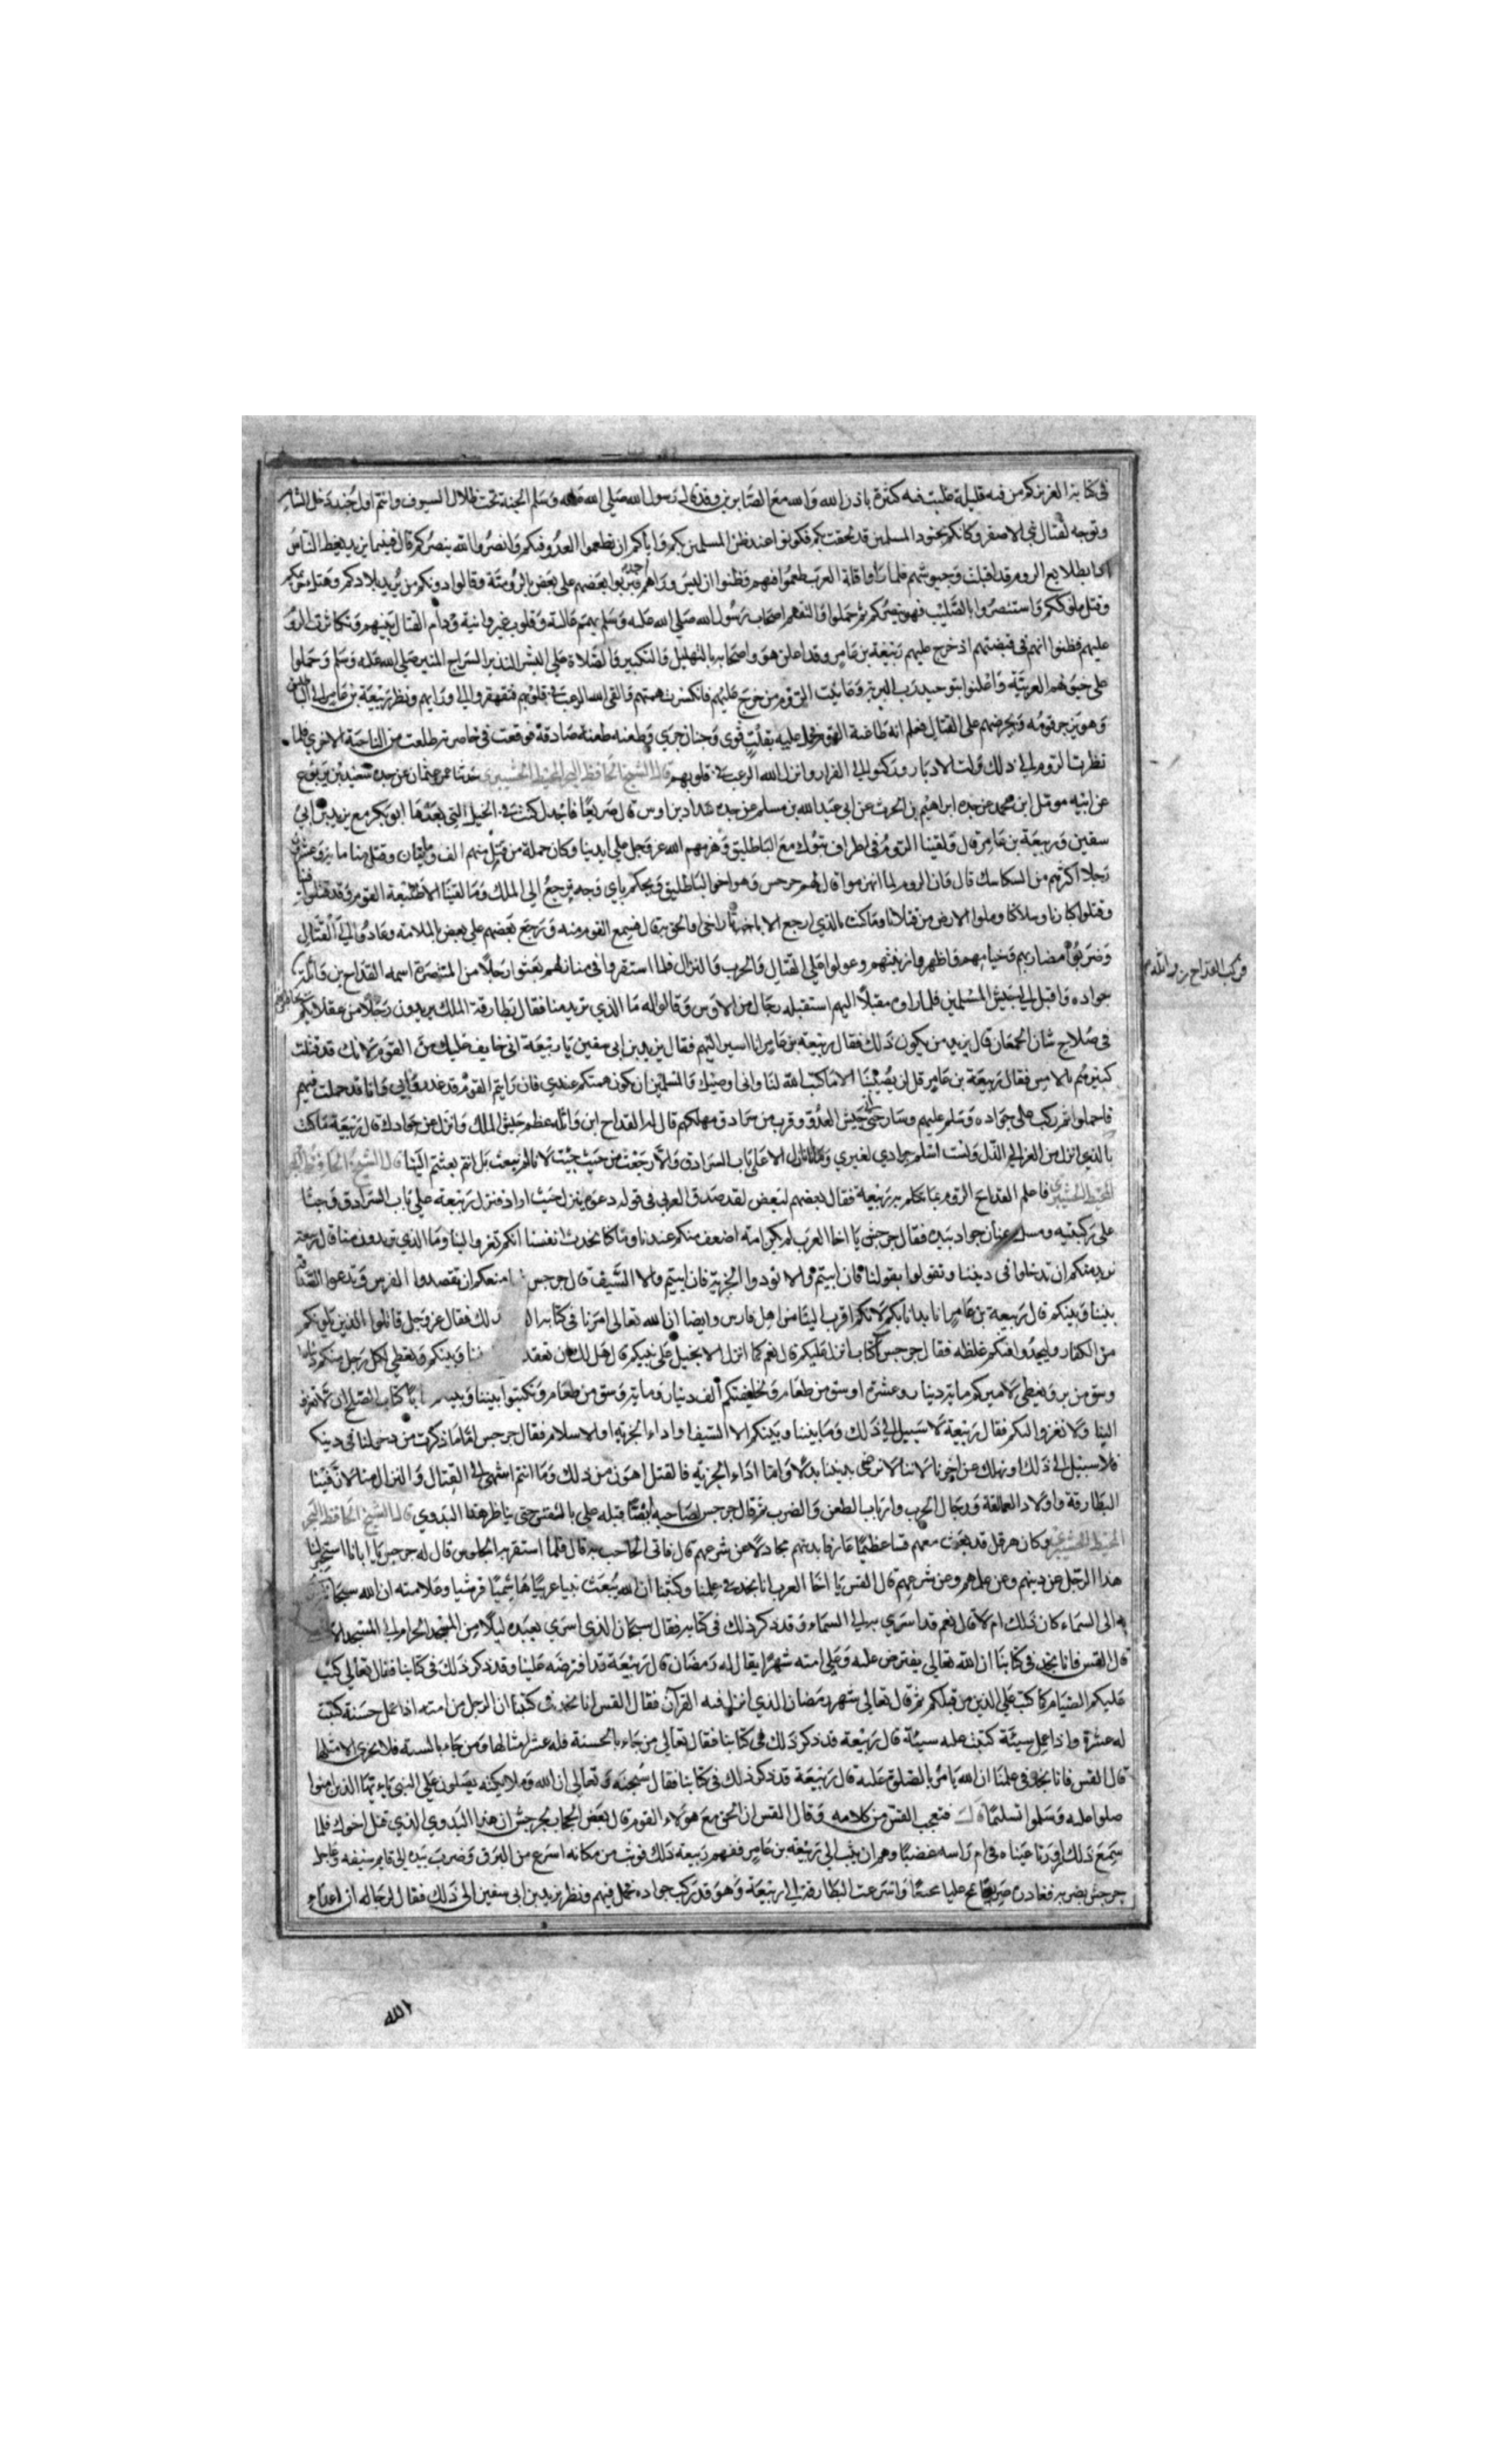 في كتابه العزيز كم من فئة قليلة غلبت فئة كثيرة باذن الله والله مع الصابرين وقد قال رسول الله صلى الله عليه وسلم الجنة تحت ظلال السيوف وانتم اول جند دخل الشام
وتوجه لقتال بني الاصفر وكانكم بجنود المسلمين قد لحقت بكم فكونوا عند ظن المسلمين بكم واياكم ان يطمعوا العدو فيكم وانصروا الله ينصركم قال فبينما يزيد يعظ الناس
اذا بطلايع الروم قد اقبلت وجيوشهم فلما راوا قلة العرب طمعوا فيهم وظنوا ان ليس وراهم احد فبربوا بعضهم على بعض بالرومية وقالوا دونكم من يريد بلادكم
وقتل ملوككم واستنصروا بالصليب فهو ينصركم ثم حملوا والتقاهم اصحاب رسول الله صلى الله عليه وسلم بهمم عالية وقلوب غير وانية ودام القتال بينهم وتكاثرت الروم
عليهم فظنوا انهم في قبضتهم اذ خرج عليهم ربيعة بن عامر وقد اعلن هو واصحابه بالتهليل والتكبير والصلاة على البشير النذير السراج المنير صلى الله عليه وسلم وحملوا
على خيولهم العربية واعلنوا بتوحيد رب البرية وعاينت الروم من خرج عليهم فانكسرت همتهم والقى الله الرعب في قلوبهم فتقهقروا الى ورايهم ونظر ربيعة بن عامر الى الباطليق
وهو يزجر قومه ويحرضهم على القتال فعلم انه طاغية القوم فحمل عليه بقلب قوى وجنان جري وطعنه طعنة صادقة فوقعت في خاصرته وطلعت من الناحية الاخرى فلما
نظرت الروم الى ذلك ولت الادبار وركنوا الى الفرار وانزل الله الرعب في قلوبهم قال الشيخ الحافظ حدثنا عمر بن عثمان عن جده سعيد بن يربوع
عن ابيه موتل ابن محمد عن جده ابراهيم بن الحرث عن ابي عبد الله بن مسلم عن جده شداد بن اوس قال كنت في الخيل التي بعثها ابو بكر مع يزيد بن ابي
سفين وربيعة بن عامر قال ولقينا الروم في اطراف تبوك مع الباطليق وهزمهم الله عز وجل على ايدينا وكان جملة من قتل منهم الف ومايتان وقتل منا ماية وعشرون
رجلا اكثرهم من السكاسك قال وان الروم لما انهزموا قال لهم جرجس وهو اخو الباطليق ويحكم باي وجه يرجع الى الملك وما لقينا الا طليعة القوم وقد فعلوا
وقتلوا كبارنا وملوا الارض من قتلانا وما كنت بالذي ارجع الا باخذ ثار اخي او الحق به قال فسمع القوم منه ورجع بعضهم على بعض بالملامة وعادوا الى القتال
وضربوا مضاربهم وخيامهم واظهروا زينتهم وعولوا على القتال والحرب والنزال فلما استقروا في منازلهم بعثوا رجلا من المتنصرة اسمه القداح بن واثلة
فركب القداح بن واثله
جواده واقبل الى جيش المسلمين فلما راوه مقبلا اليهم استقبله رجال من الاوس وقالوا له ما الذي تريد منا فقال بطارقة الملك يريدون رجلا من عقلايكم
في صلاح شان الجمعان قال يزيد من يكون ذلك فقال ربيعة بن عامر انا اسير اليهم فقال يزيد بن ابي سفين يا ربيعة اني خايف عليك من القوم لانك قد قتلت
كبيرهم بالامس فقال ربيعة بن عامر قل لن يصيبنا الا ما كتب الله لنا واني اوصيك والمسلمين ان يكون همتكم عندي فان رايتم القوم قد غدروا بي وانا قد حملت فيهم
فاحملوا ثم ركب على جواده وسلم عليهم وسار حتى اتى جيش العدو وقرب من سرادق مهلكهم قال له القداح ابن واثله عظم جيش الملك وانزل عن جوادك قال ربيعة ما كنت
بالذي انزل من العز الى الذل ولست اسلم جوادي لغيري وما انا نازل الا على باب السرادق والا رجعت من حيث جيت لانا لم نبعث بل انتم بعثتم الينا قال الشيخ الحافظ
فاعلم القداح الروم بما تكلم به ربيعة فقال بعضهم لبعض لقد صدق العربي في قوله دعوه ينزل حيث اراد فنزل ربيعة على باب السرادق وجثا
على ركبتيه ومسك عنان جواده بيده فقال جرجس يا اخا العرب لم يكن امة اضعف منكم عندنا وما كنا نحدث انفسنا انكم تغزوا الينا وما الذي تريدون منا قال ربيعة
نريد منكم ان تدخلوا في ديننا وتقولوا بقولنا فان ابيتم والا تودوا الجزية فان ابيتم والا السيف قال جرجس منعكم ان تقصدوا الفرس وتدعوا الصداقة
بيننا وبينكم قال ربيعة بن عامر انا بدانا بكم لانكم اقرب الينا من اهل فارس وايضا ان الله تعالى امرنا في كتابه ذلك فقال عز وجل قاتلوا الذين يلونكم
من الكفار وليجدوا فيكم غلظه فقال جرجس كتاب انزل عليكم قال نعم كما انزل الانجيل على نبيكم قال هل لك ان تعقد بيننا وبينكم ونعطي لكل رجل منكم
وسق من بر ونعطي لاميركم ماية دينار وعشرة اوسق من طعام ولخليفتكم الف دينار وماية وسق من طعام وتكتبوا بيننا وبينكم كتاب الصلح ان لا تغزوا
الينا ولا نغزوا اليكم فقال ربيعة لا سبيل الى ذلك وما بيننا وبينكم الا السيف او اداء الجزيه او الاسلام فقال جرجس اما ما ذكرت من دخولنا في دينكم
فلا سبيل الى ذلك او نهلك عن اخرنا لاننا لا نرضى بديننا بدلا واما اداء الجزيه فالقتل اهون من ذلك وما انتم اشهى الى القتال والنزال منا لان فينا
البطارقة واولاد العمالقة ورجال الحرب وارباب الطعن والضرب ثم قال جرجس لصاحبه علي بالقس حتى يناظر هذا البدوي قال الشيخ الحافظ
وكان هرقل قد بعث معهم قسا عظيما عارفا بدينهم مجادلا عن شرعهم قال فاتى الحاجب به قال فلما استقر به الجلوس قال له جرجس يا ابانا استخبر لنا
هذا الرجل عن دينهم وعن شرعهم قال القس يا اخا العرب انا نجد في علمنا وكتبنا ان الله يبعث نبيا عربيا هاشميا قرشيا وعلامته ان الله سبحانه
به الى السماء كان ذلك ام لا قال نعم قد اسري به الى السماء وقد ذكر ذلك في كتابه فقال سبحان الذي اسرى بعبده ليلا من المسجد الحرام الى المسجد
قال القس فانا نجد في كتابنا ان الله تعالى يفترض عليه وعلى امته شهرا يقال له رمضان قال ربيعة قد افترضه علينا وقد ذكر ذلك في كتابنا فقال تعالى كتب
عليكم الصيام كما كتب على الذين من قبلكم ثم قال تعالى شهر رمضان الذي انزل فيه القرآن فقال القس انا نجد في كتبنا ان الرجل من امته اذا عمل حسنة كتبت
له عشرة واذا عمل سيئة كتبت عليه سيئة قال ربيعة قد ذكر ذلك في كتابنا فقال تعالى من جاء بالحسنة فله عشر امثالها ومن جاء بالسيئه فلا يجزى الا مثلها
قال القس فانا نجد في علمنا ان الله يامر بالصلوة عليه قال ربيعة قد ذكر ذلك في كتابنا فقال سبحنه وتعالى ان الله وملائكته يصلون على النبي يا ايها الذين امنوا
صلوا عليه وسلموا تسليما قال فتعجب القس من كلامه وقال القس ان الحق مع هولاء القوم قال بعض الحجاب لجرجس ان هذا البدوي الذي قتل اخوك فلما
سمع ذلك ازورتا عيناه في ام راسه غضبا وهم ان يثب الى ربيعة بن عامر ففهم ربيعة ذلك فوثب من مكانه اسرع من البرق وضرب بيده الى قايم سيفه وعاجل
جرجس بضربه فغادره صريعا وانسرعت البطارقة الى ربيعة وهو قد ركب جواده فحمل فيهم ونظر يزيد بن ابي سفين الى ذلك فقال لرجاله ان اعداء
الله